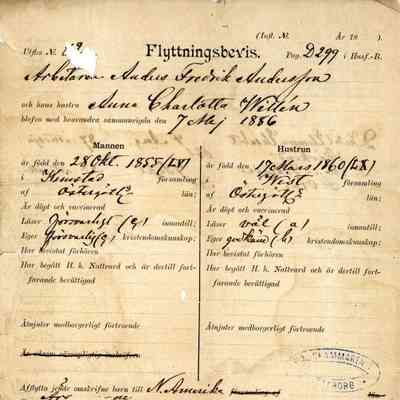 (Inst. №. År 18 ).
Utfln №. Flyttningsbevis. Pag. D299 i Husf.-B.
Arbetaren Anders Fredrik Andersson
och hans hustru Anna Charlotta Wettén
blefvo med hvarandra sammanvigda den 7 Maj 1886
Mannen
är född den 28 Okt. 1855 (28)
i församling
af Östergötl. län;
Är döpt och vaccinerad
Läser försvarligt innantill;
Eger försvarlig kristendomskunskap;
Har bevistat förhören
Har begått H. h. Nattvard och är dertill fort-
farande berättigad
Åtnjuter medborgerligt förtroende
Hustrun
är född den 17 Mars 1860 (28)
i församling
af Östergötl. län;
Är döpt och vaccinerad
Läser väl (a) innantill;
Eger godkänd (b) kristendomskunskap;
Har bevistat förhören
Har begått H. h. Nattvard och är dertill fort-
farande berättigad
Åtnjuter medborgerligt förtroende
Afflytta jemte omskrifne barn till N. Amerika församling af